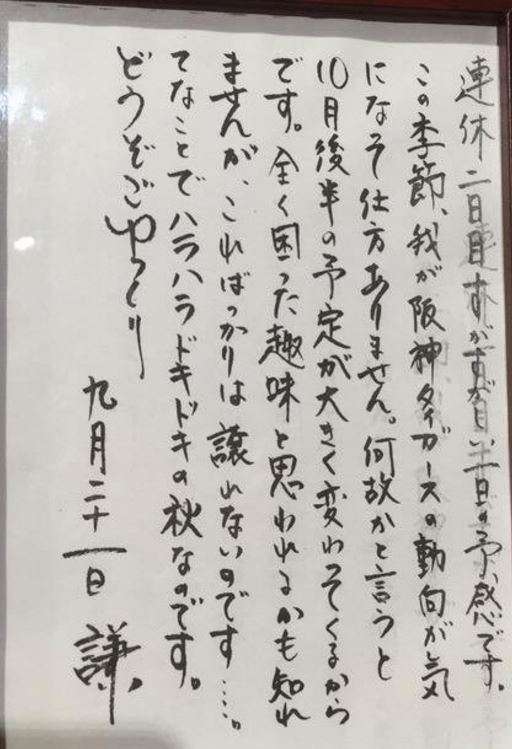 連休二日目すがすがしい一日の予感です。
この季節、我が阪神タイガースの動向が気
になって仕方ありません。何故かと言うと
10月後半の予定が大きく変わってくるから
です。全く困った趣味と思われるかも知れ
ませんが、こればっかりは譲れないのです……。
てなことでハラハラドキドキの秋なのです。
どうぞごゆっくり
九月二十一日 謙